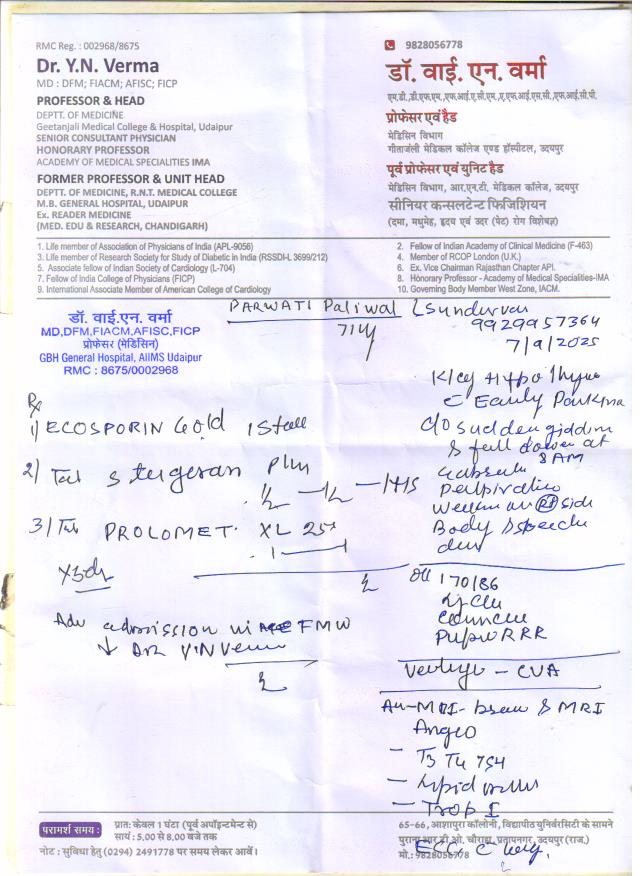 RMC Reg. : 002968/8675
Dr. Y.N. Verma
MD : DFM; FIACM; AFISC; FICP
PROFESSOR & HEAD
DEPTT. OF MEDICINE
Geetanjali Medical College & Hospital, Udaipur
SENIOR CONSULTANT PHYSICIAN
HONORARY PROFESSOR
ACADEMY OF MEDICAL SPECIALITIES IMA
FORMER PROFESSOR & UNIT HEAD
DEPTT. OF MEDICINE, R.N.T. MEDICAL COLLEGE
M.B. GENERAL HOSPITAL, UDAIPUR
Ex. READER MEDICINE
(MED. EDU & RESEARCH, CHANDIGARH)
9828056778
डॉ. वाई. एन. वर्मा
एम.डी.,डी.एफ.एम.,एफ.आई.ए.सी.एम.,ए.एफ.आई.एस.सी.,एफ.आई.सी.पी.
प्रोफेसर एवं हैड
मेडिसिन विभाग
गीतांजली मेडिकल कॉलेज एण्ड हॉस्पीटल, उदयपुर
पूर्व प्रोफेसर एवं युनिट हैड
मेडिसिन विभाग, आर.एन.टी. मेडिकल कॉलेज, उदयपुर
सीनियर कन्सलटेन्ट फिजिशियन
(दमा, मधुमेह, हृदय एवं उदर (पेट) रोग विशेषज्ञ)
1. Life member of Association of Physicians of India (APL-9056)
3. Life member of Research Society for Study of Diabetic in India (RSSDI-L 3699/212)
5. Associate fellow of Indian Society of Cardiology (L-704)
7. Fellow of India College of Physicians (FICP)
9. International Associate Member of American College of Cardiology
2. Fellow of Indian Academy of Clinical Medicine (F-463)
4. Member of RCOP London (U.K.)
6. Ex. Vice Chairman Rajasthan Chapter API.
8. Honorary Professor - Academy of Medical Specialities-IMA
10. Governing Body Member West Zone, IACM.
PARWATI Paliwal
71y
9929957364
7/9/2025
डॉ. वाई.एन. वर्मा
MD,DFM,FIACM,AFISC,FICP
प्रोफेसर (मेडिसिन)
GBH General Hospital, AIIMS Udaipur
RMC : 8675/0002968
Rx
1) ECOSPORIN Gold 1 
2) Tab Stugeran Plus
HS
3) Tab PROLOMET XL 25
Adv admission FMW
↓ Dr Y.N Verma
K/C/O Hypothyro
c Early
c/o sudden giddin
& fall down at
8 AM
RT side
Body & speech
170/86
RRR
Vertigo - CVA
MRI - brain & MRI
Angio
- T3 T4 TSH
- Lipid
- Trop I
ECG c
परामर्श समय :
प्रातः केवल 1 घंटा (पूर्व अपॉइन्टमेन्ट से)
सायं : 5.00 से 8.00 बजे तक
नोट : सुविधा हेतु (0294) 2491778 पर समय लेकर आवें।
65-66, आशापुरा कॉलोनी, विद्यापीठ युनिवर्सिटी के सामने
पुराना आर.टी.ओ. चौराहा, प्रतापनगर, उदयपुर (राज.)
मो.: 9828056778